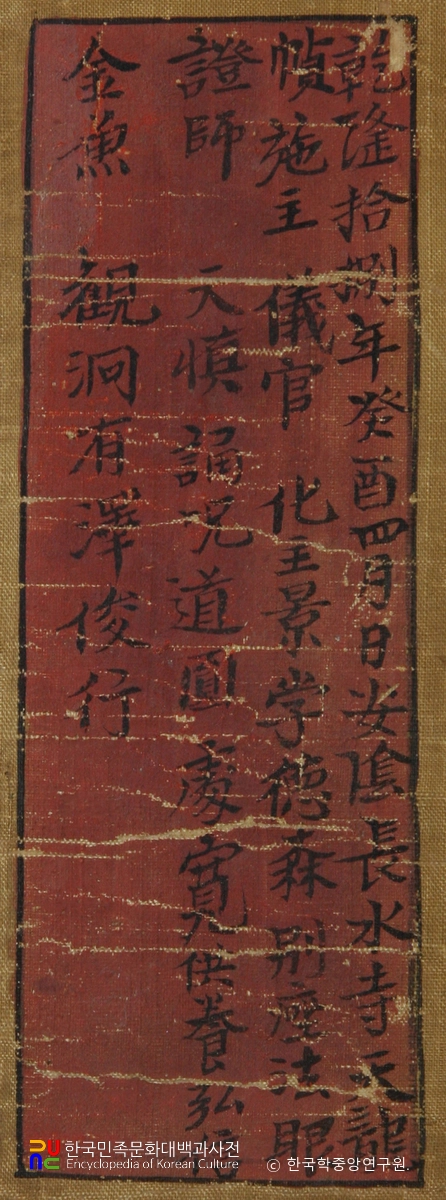 乾隆拾捌年癸酉四月日安陰長水寺天龍
幀施主 儀官 化主景学德森別座法眼
證師 天愼 誦呪道圓 處寬供養弘
金魚 觀洞有澤俊行
한국민족문화대백과사전
Encyclopedia of Korean Culture
© 한국학중앙연구원.